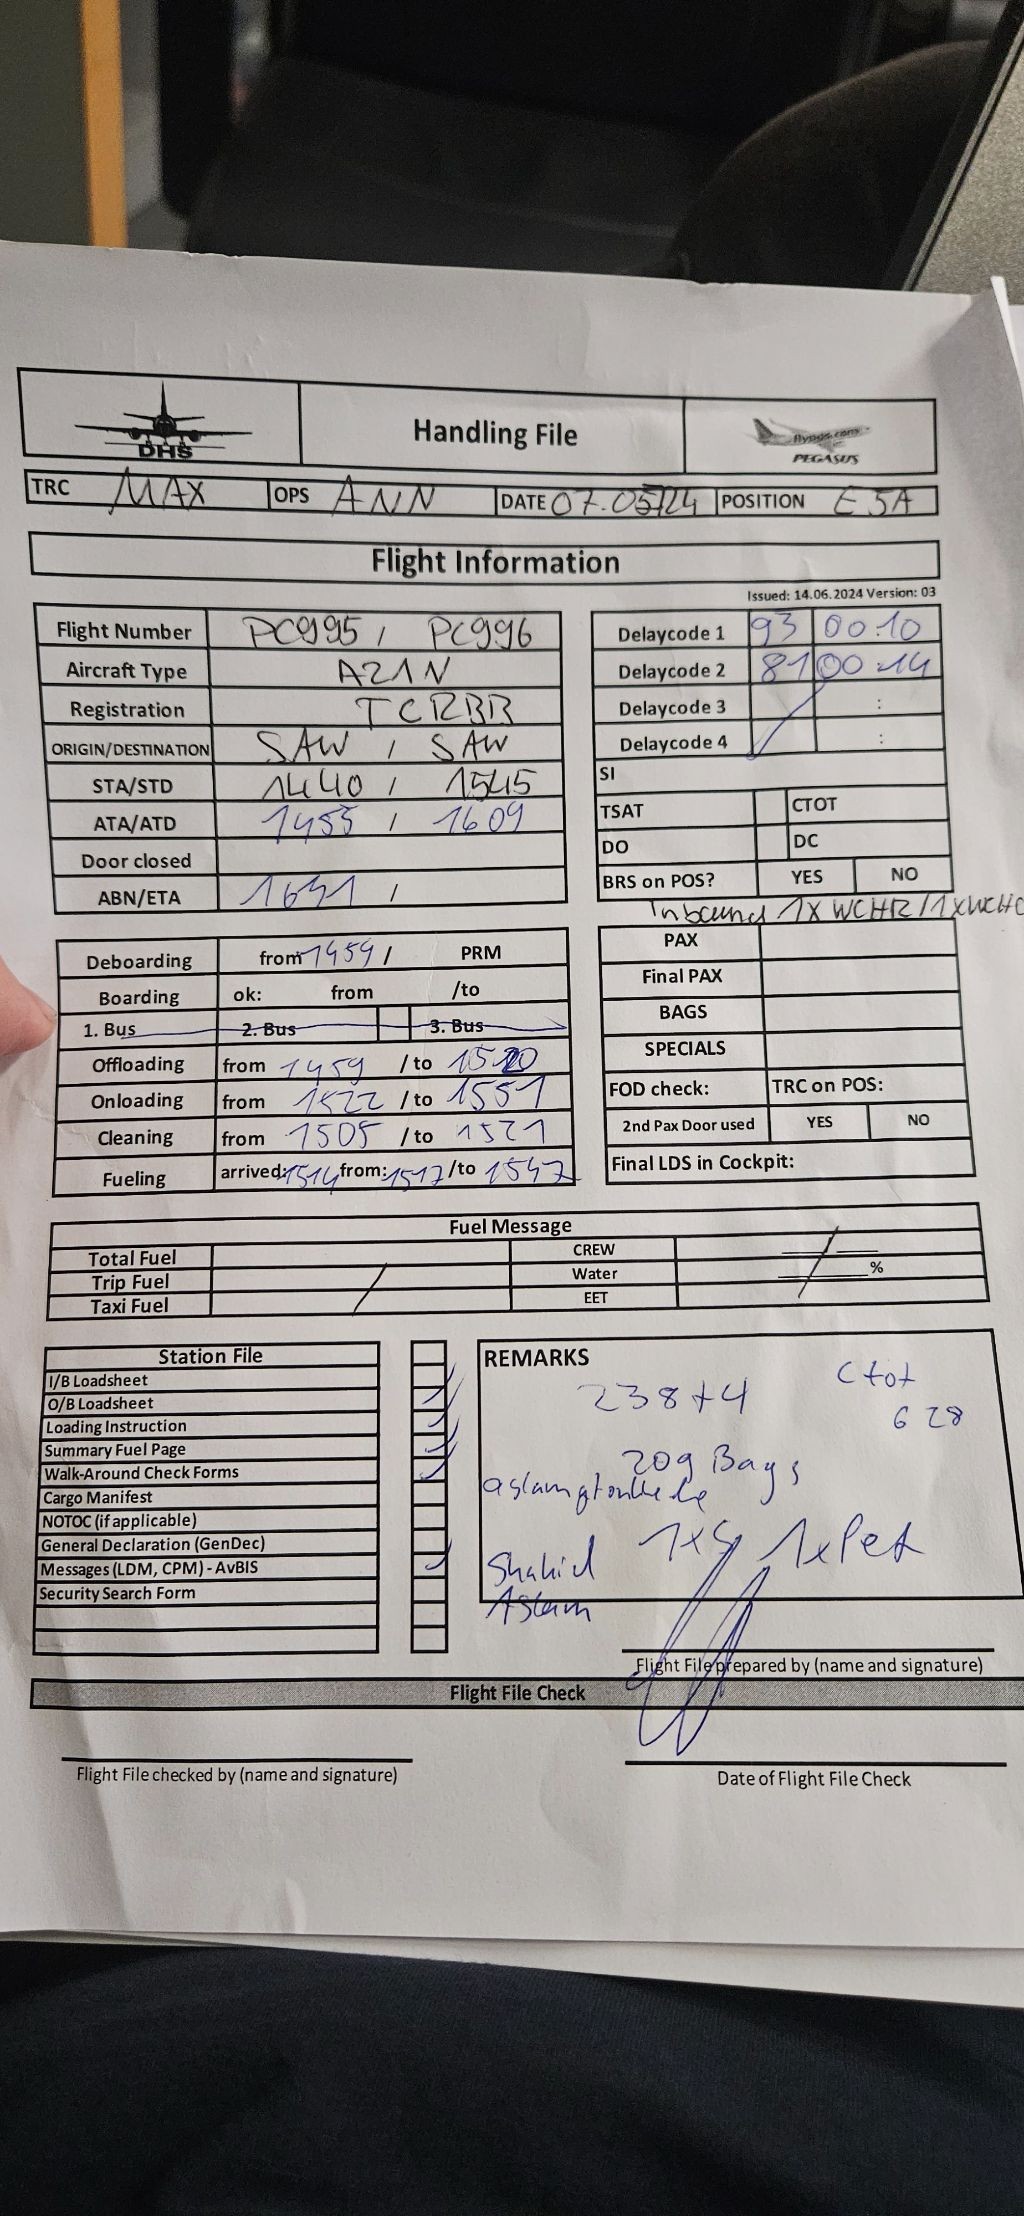 DHS
Handling File
flypgs.com
PEGASUS
TRC MAX OPS ANN DATE 07.05/24 POSITION E5A
Flight Information
Issued: 14.06.2024 Version: 03
Flight Number PC995 / PC996
Aircraft Type A21N
Registration TCRBB
ORIGIN/DESTINATION SAW / SAW
STA/STD 1440 / 1545
ATA/ATD 1455 / 1609
Door closed
ABN/ETA /
Delaycode 1 93 00:10
Delaycode 2 81 00:14
Delaycode 3 :
Delaycode 4 :
SI
TSAT CTOT
DO DC
BRS on POS? YES NO
Inbound 1x WCHR/1xWCHC
Deboarding from 1459 / PRM
Boarding ok: from /to
1. Bus 2. Bus 3. Bus
Offloading from 1459 /to 1520
Onloading from 1522 /to 1551
Cleaning from 1505 /to 1521
Fueling arrived: 1514 from: 1517 /to 1547
PAX
Final PAX
BAGS
SPECIALS
FOD check: TRC on POS:
2nd Pax Door used YES NO
Final LDS in Cockpit:
Fuel Message
Total Fuel CREW
Trip Fuel Water %
Taxi Fuel EET
Station File
I/B Loadsheet
O/B Loadsheet
Loading Instruction
Summary Fuel Page
Walk-Around Check Forms
Cargo Manifest
NOTOC (if applicable)
General Declaration (GenDec)
Messages (LDM, CPM) - AvBIS
Security Search Form
REMARKS
238+4
Ctot
628
209 Bags
1x 1xPet
Shahid
Aslam
Flight File prepared by (name and signature)
Flight File Check
Flight File checked by (name and signature)
Date of Flight File Check